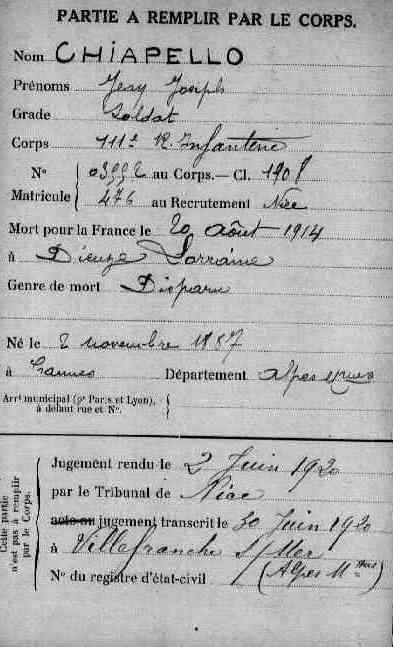 PARTIE A REMPLIR PAR LE CORPS.
Nom CHIAPELLO
Prénoms Jean Joseph
Grade Soldat
Corps 111e R. Infanterie
N° 03992 au Corps. — Cl. 1908
Matricule 476 au Recrutement Nice
Mort pour la France le 20 Août 1914
à Dieuze Lorraine
Genre de mort Disparu
Né le 2 novembre 1887
à Cannes Département Alpes Mmes
Arrt municipal (pr Paris et Lyon),
à défaut rue et N°.
Cette partie
n'est pas à remplir
par le Corps.
Jugement rendu le 2 Juin 1920
par le Tribunal de Nice
acte ou jugement transcrit le 30 Juin 1920
à Villefranche S/Mer
(Alpes Mmes)
N° du registre d'état-civil